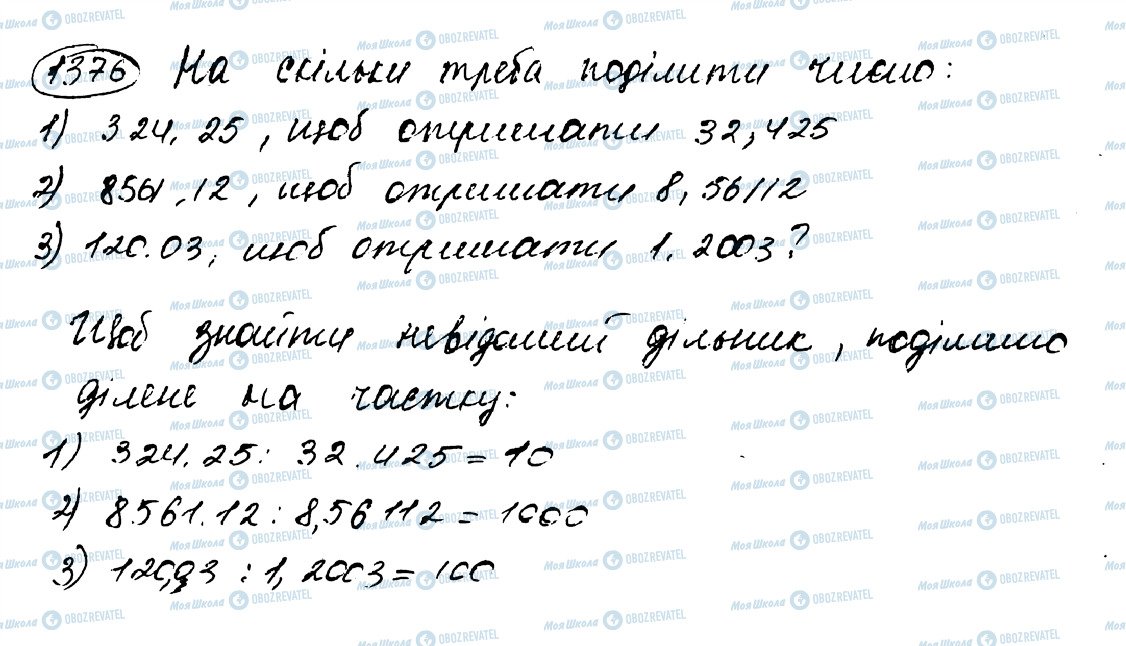 1376 На скільки треба поділити число:
1) 324.25, щоб отримати 32,425
2) 8561.12, щоб отримати 8,56112
3) 120.03, щоб отримати 1.2003?
Щоб знайти невідомий дільник, поділимо
ділене на частку:
1) 324.25 : 32.425 = 10
2) 8561.12 : 8,56112 = 1000
3) 120,03 : 1,2003 = 100